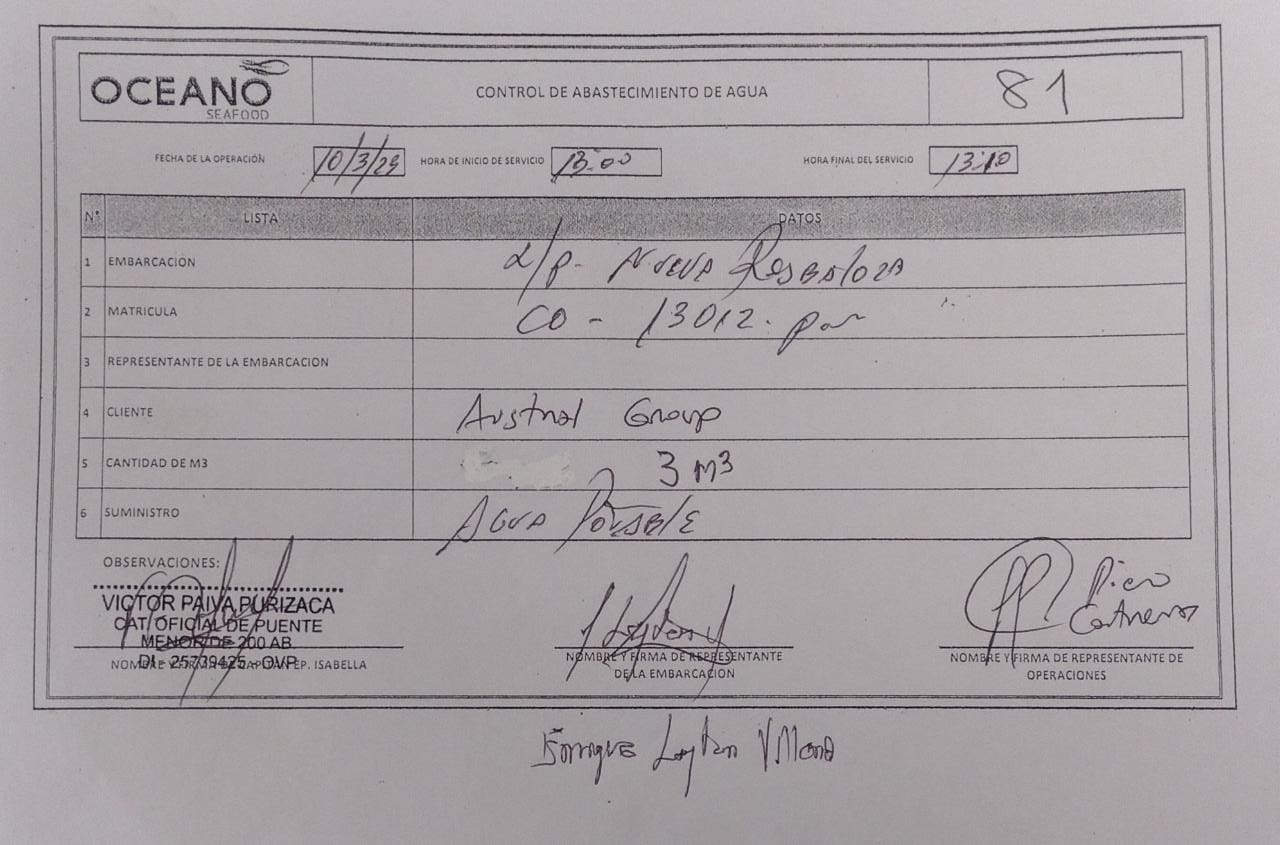 OCEANO
SEAFOOD
CONTROL DE ABASTECIMIENTO DE AGUA
81
FECHA DE LA OPERACIÓN 10/3/25 HORA DE INICIO DE SERVICIO 13:00 HORA FINAL DEL SERVICIO 13:10
N° LISTA DATOS
1 EMBARCACIÓN NUEVA RESBALOZA
2 MATRICULA CO - 13012
3 REPRESENTANTE DE LA EMBARCACION
4 CLIENTE Austral Group
5 CANTIDAD DE M3 3 M3
6 SUMINISTRO AGUA POTABLE
OBSERVACIONES:
VICTOR PAIVA PURIZACA
CAT OFICIAL DE PUENTE
MENOR DE 200 AB
DI - 25739425 - OVP
NOMBRE Y FIRMA EP. ISABELLA
NOMBRE Y FIRMA DE REPRESENTANTE
DE LA EMBARCACIÓN
Piero
Contreras
NOMBRE Y FIRMA DE REPRESENTANTE DE
OPERACIONES
Enrique Leyton